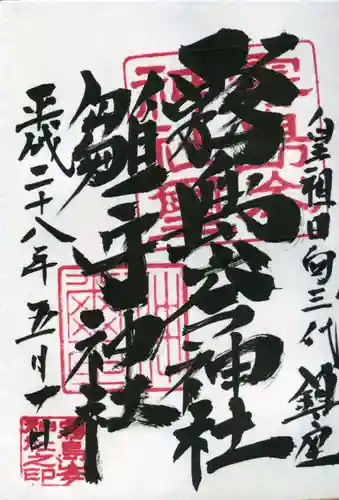 皇祖日向三代鎮座
霧島岑神社
雛守神社
平成二十八年五月一日